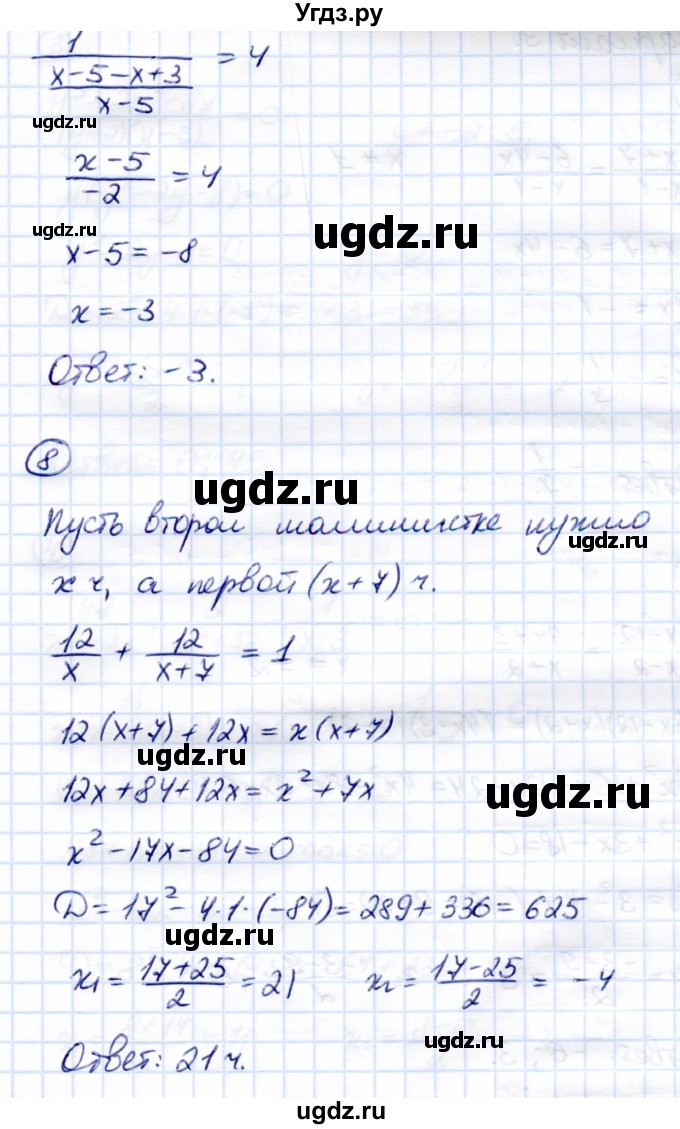 Угдз.ру
1 / ((x-5-x+3) / (x-5)) = 4
ugdz.ru
(x-5) / -2 = 4
ugdz.ru
ugdz.ru
x-5 = -8
x = -3
Ответ: -3.
8
ugdz.ru
Пусть второй машинистке нужно
ugdz.ru
x ч, а первой (x+7) ч.
12/x + 12/(x+7) = 1
12(x+7)+12x = x(x+7)
ugdz.ru
12x+84+12x = x²+7x
ugdz.ru
x²-17x-84=0
D = 17²-4·1·(-84) = 289+336 = 625
ugdz.ru
x₁ = (17+25)/2 = 21 x₂ = (17-25)/2 = -4
ugdz.ru
Ответ: 21 ч.
ugdz.ru